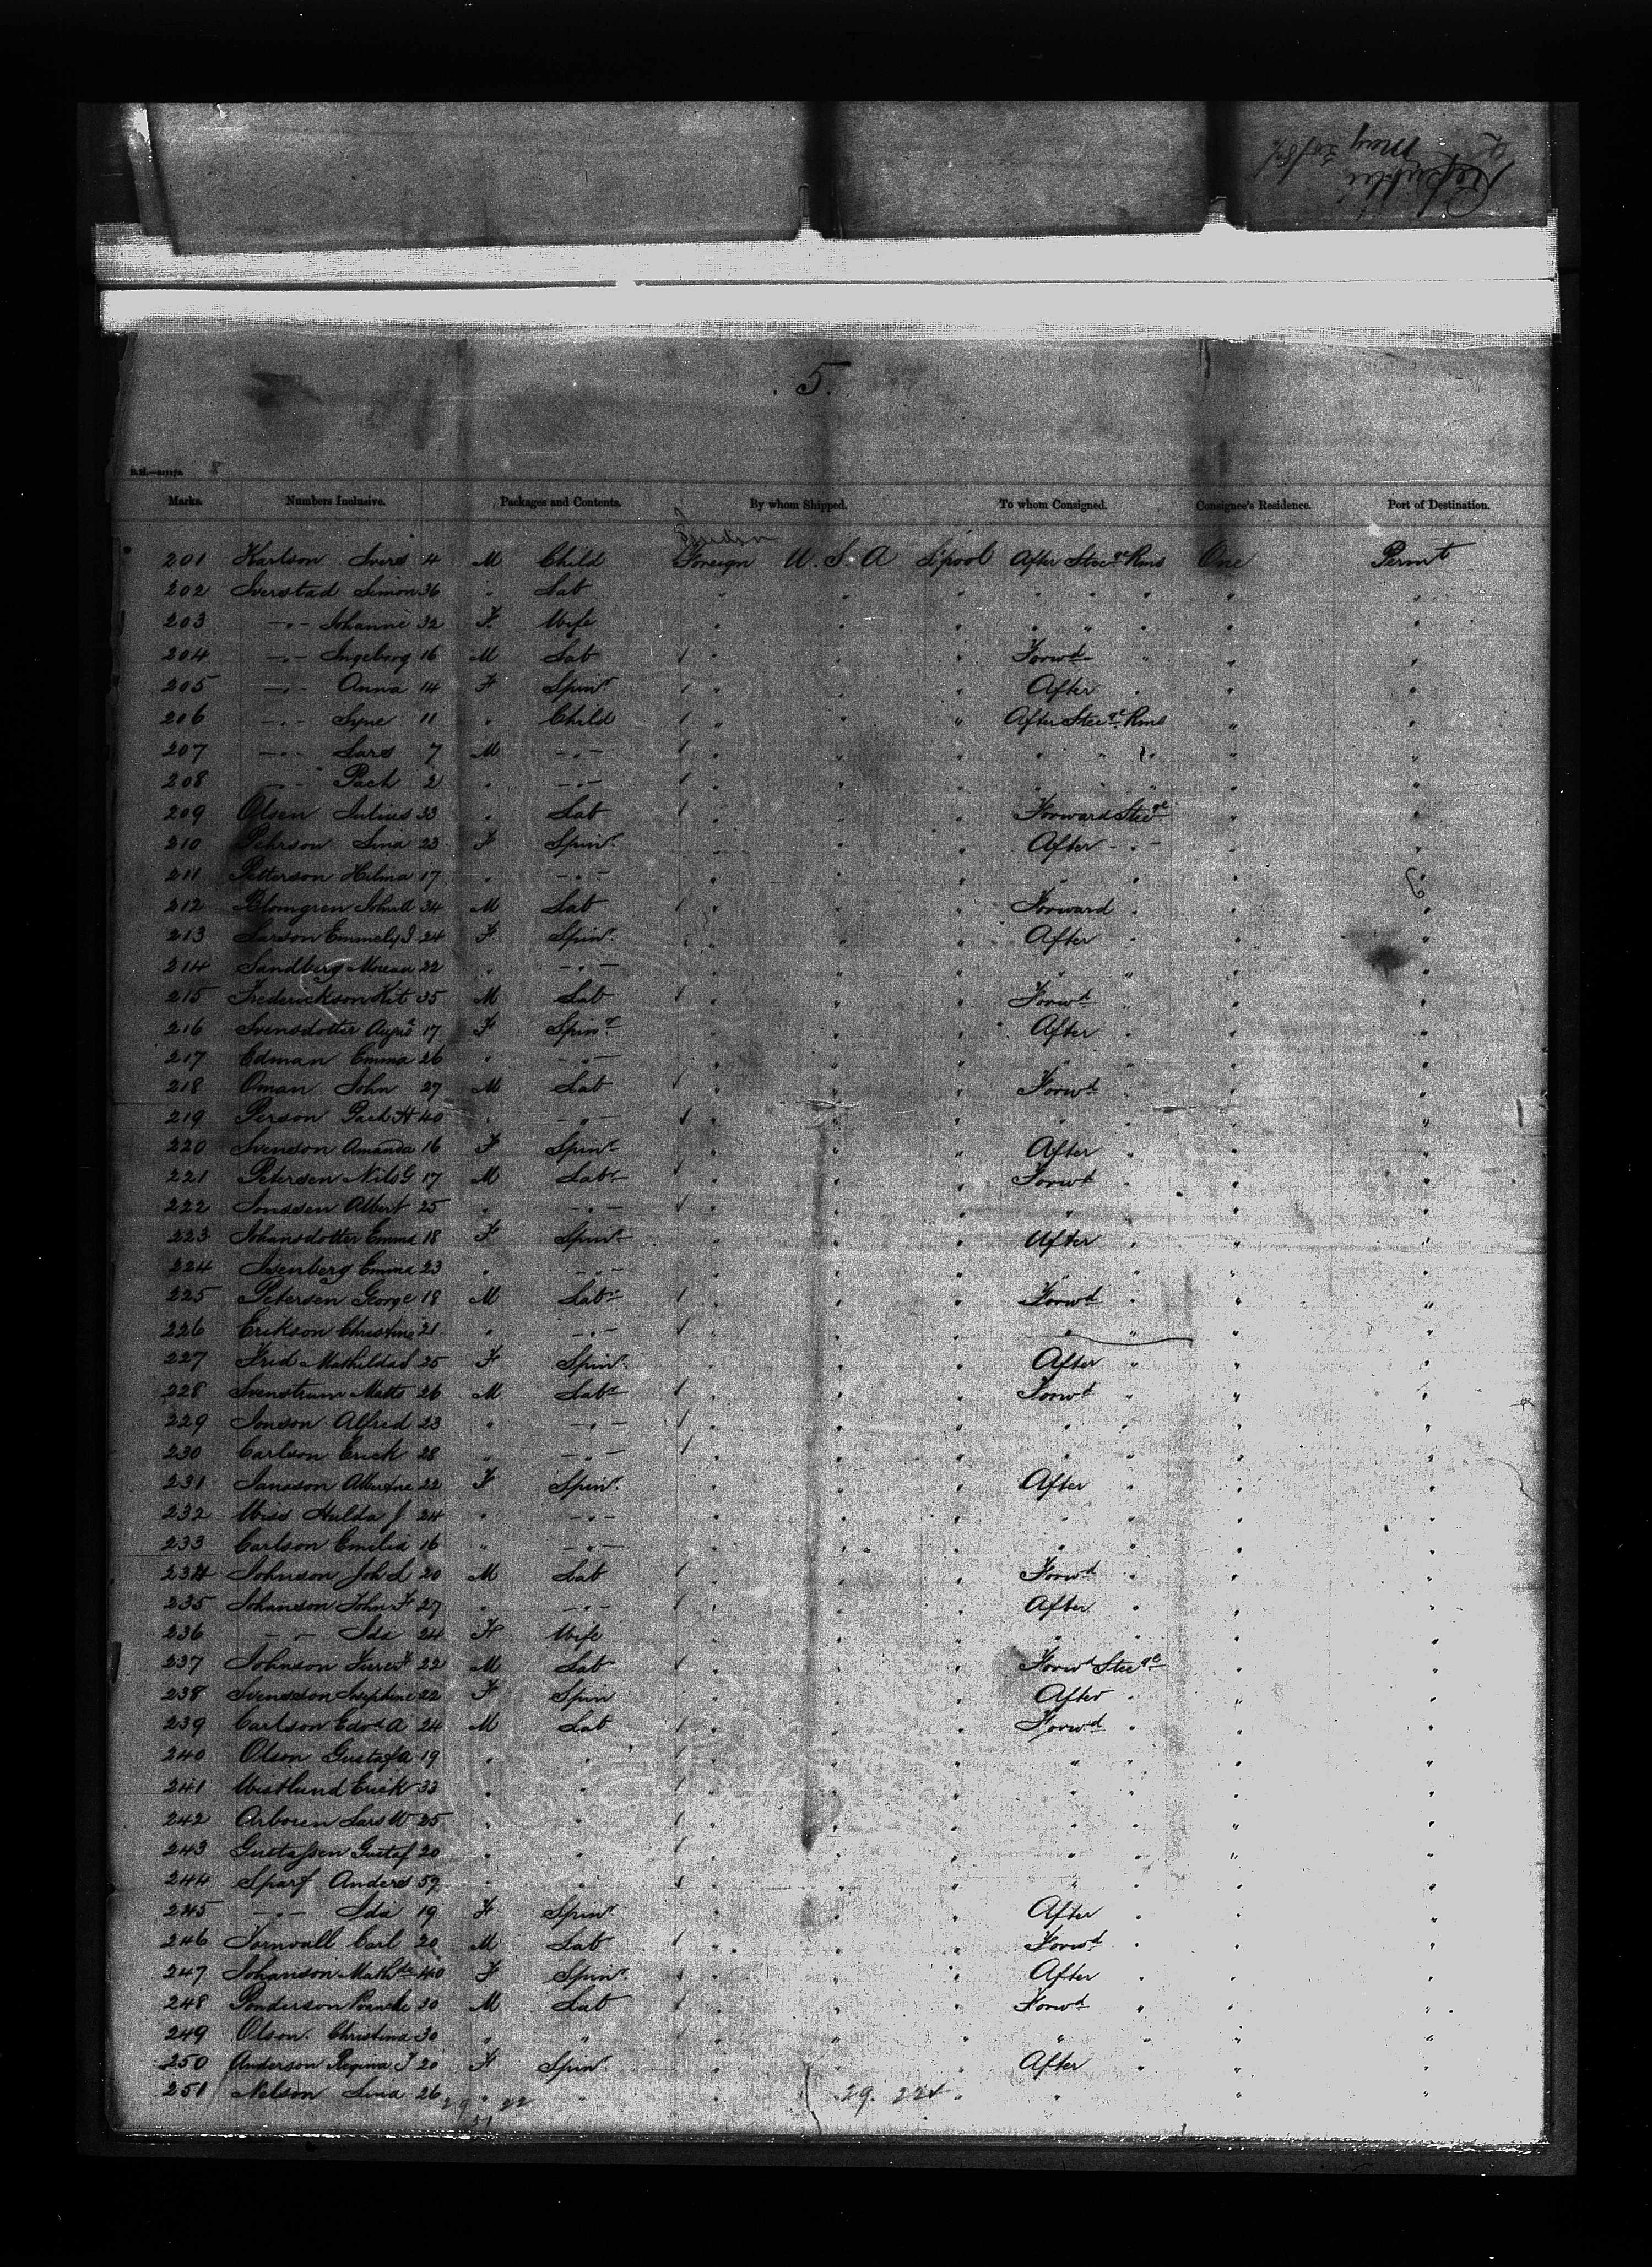 Republic
May 20/87
5.
Marks. Numbers Inclusive. Packages and Contents. By whom Shipped. To whom Consigned. Consignee's Residence. Port of Destination.
Sweden
201 Karlson Ivers 4 M Child Foreign U.S.A L'pool After Steege Rms One Permt
202 Iverstad Simon 36 " Lab " " " " " " " "
203 —"— Johanne 32 F. Wife " " " " " " "
204 —"— Ingeborg 16 M Lab " " " Forwd " " "
205 —"— Anna 14 F Spinr " " " After " " "
206 —"— Syne 11 " Child " " " After Steege Rms " "
207 —"— Lars 7 M —"— " " " " " " " "
208 —"— 2 " —"— " " " " " " "
209 Olsen Julius 33 " Lab " " " Forward Steege " "
210 Pehrson Lina 23 F Spinr " " " After —"— " "
211 Petterson Hilma 17 " —"— " " " " " " "
212 Blomgren 34 M Lab " " " Forward " " "
213 Larson Emmely 24 F Spinr " " " After " " "
214 Sandberg 22 " —"— " " " " " " "
215 Frederickson 35 M Lab " " " Forwd " " "
216 Svensdotter Augus 17 F Spinr " " " After " " "
217 Edman Emma 26 " —"— " " " " " " "
218 Oman John 27 M Lab " " " Forwd " " "
219 Person 40 " —"— " " " " " " "
220 Svenson Amanda 16 F Spinr " " " After " " "
221 Petersen Nils G 17 M Labr " " " Forwd " " "
222 Jonssen Albert 25 " —"— " " " " " " "
223 Johansdotter Emma 18 F Spinr " " " After " " "
224 Emma 23 " —"— " " " " " " "
225 Petersen George 18 M Labr " " " Forwd " " "
226 Erikson Christine 21 " —"— " " " " " " "
227 Frid Mathilda S 25 F Spinr " " " After " " "
228 Svenstrum Matts 26 M Labr " " " Forwd " " "
229 Jonson Alfred 23 " —"— " " " " " " "
230 Carlson Erick 28 " —"— " " " " " " "
231 Jansson Albertina 22 F Spinr " " " After " " "
232 Wiss Hulda J 24 " —"— " " " " " " "
233 Carlson Emilia 16 " —"— " " " " " " "
234 Johnson Joh L 20 M Lab " " " Forwd " " "
235 Johanson John F 27 " —"— " " " After " " "
236 —"— Ida 24 F Wife " " " " " " "
237 Johnson 22 M Lab " " " Forwd Steege " "
238 Svensson Josephine 22 F Spin " " " After " " "
239 Carlson Edwd A 24 M Lab " " " Forwd " " "
240 Olson Gustaf A 19 " " " " " " " " "
241 Wistlund Erick 33 " " " " " " " " "
242 Arboren Lars W 25 " " " " " " " " "
243 Gustafsen Gustaf 20 " " " " " " " " "
244 Sparf Anders 57 " " " " " " " "
245 —"— Ida 19 F Spinr " " " After " " "
246 Tornvall Carl 20 M Lab " " " Forwd " " "
247 Johanson Mathda 40 F Spinr " " " After " " "
248 Ponderson 30 M Lab " " " Forwd " " "
249 Olson Christina 30 " " " " " " " " "
250 Anderson Regina J 20 F Spinr " " " After " " "
251 Nelson Lina 26 " " " " " " "
29 22 29. 22
51